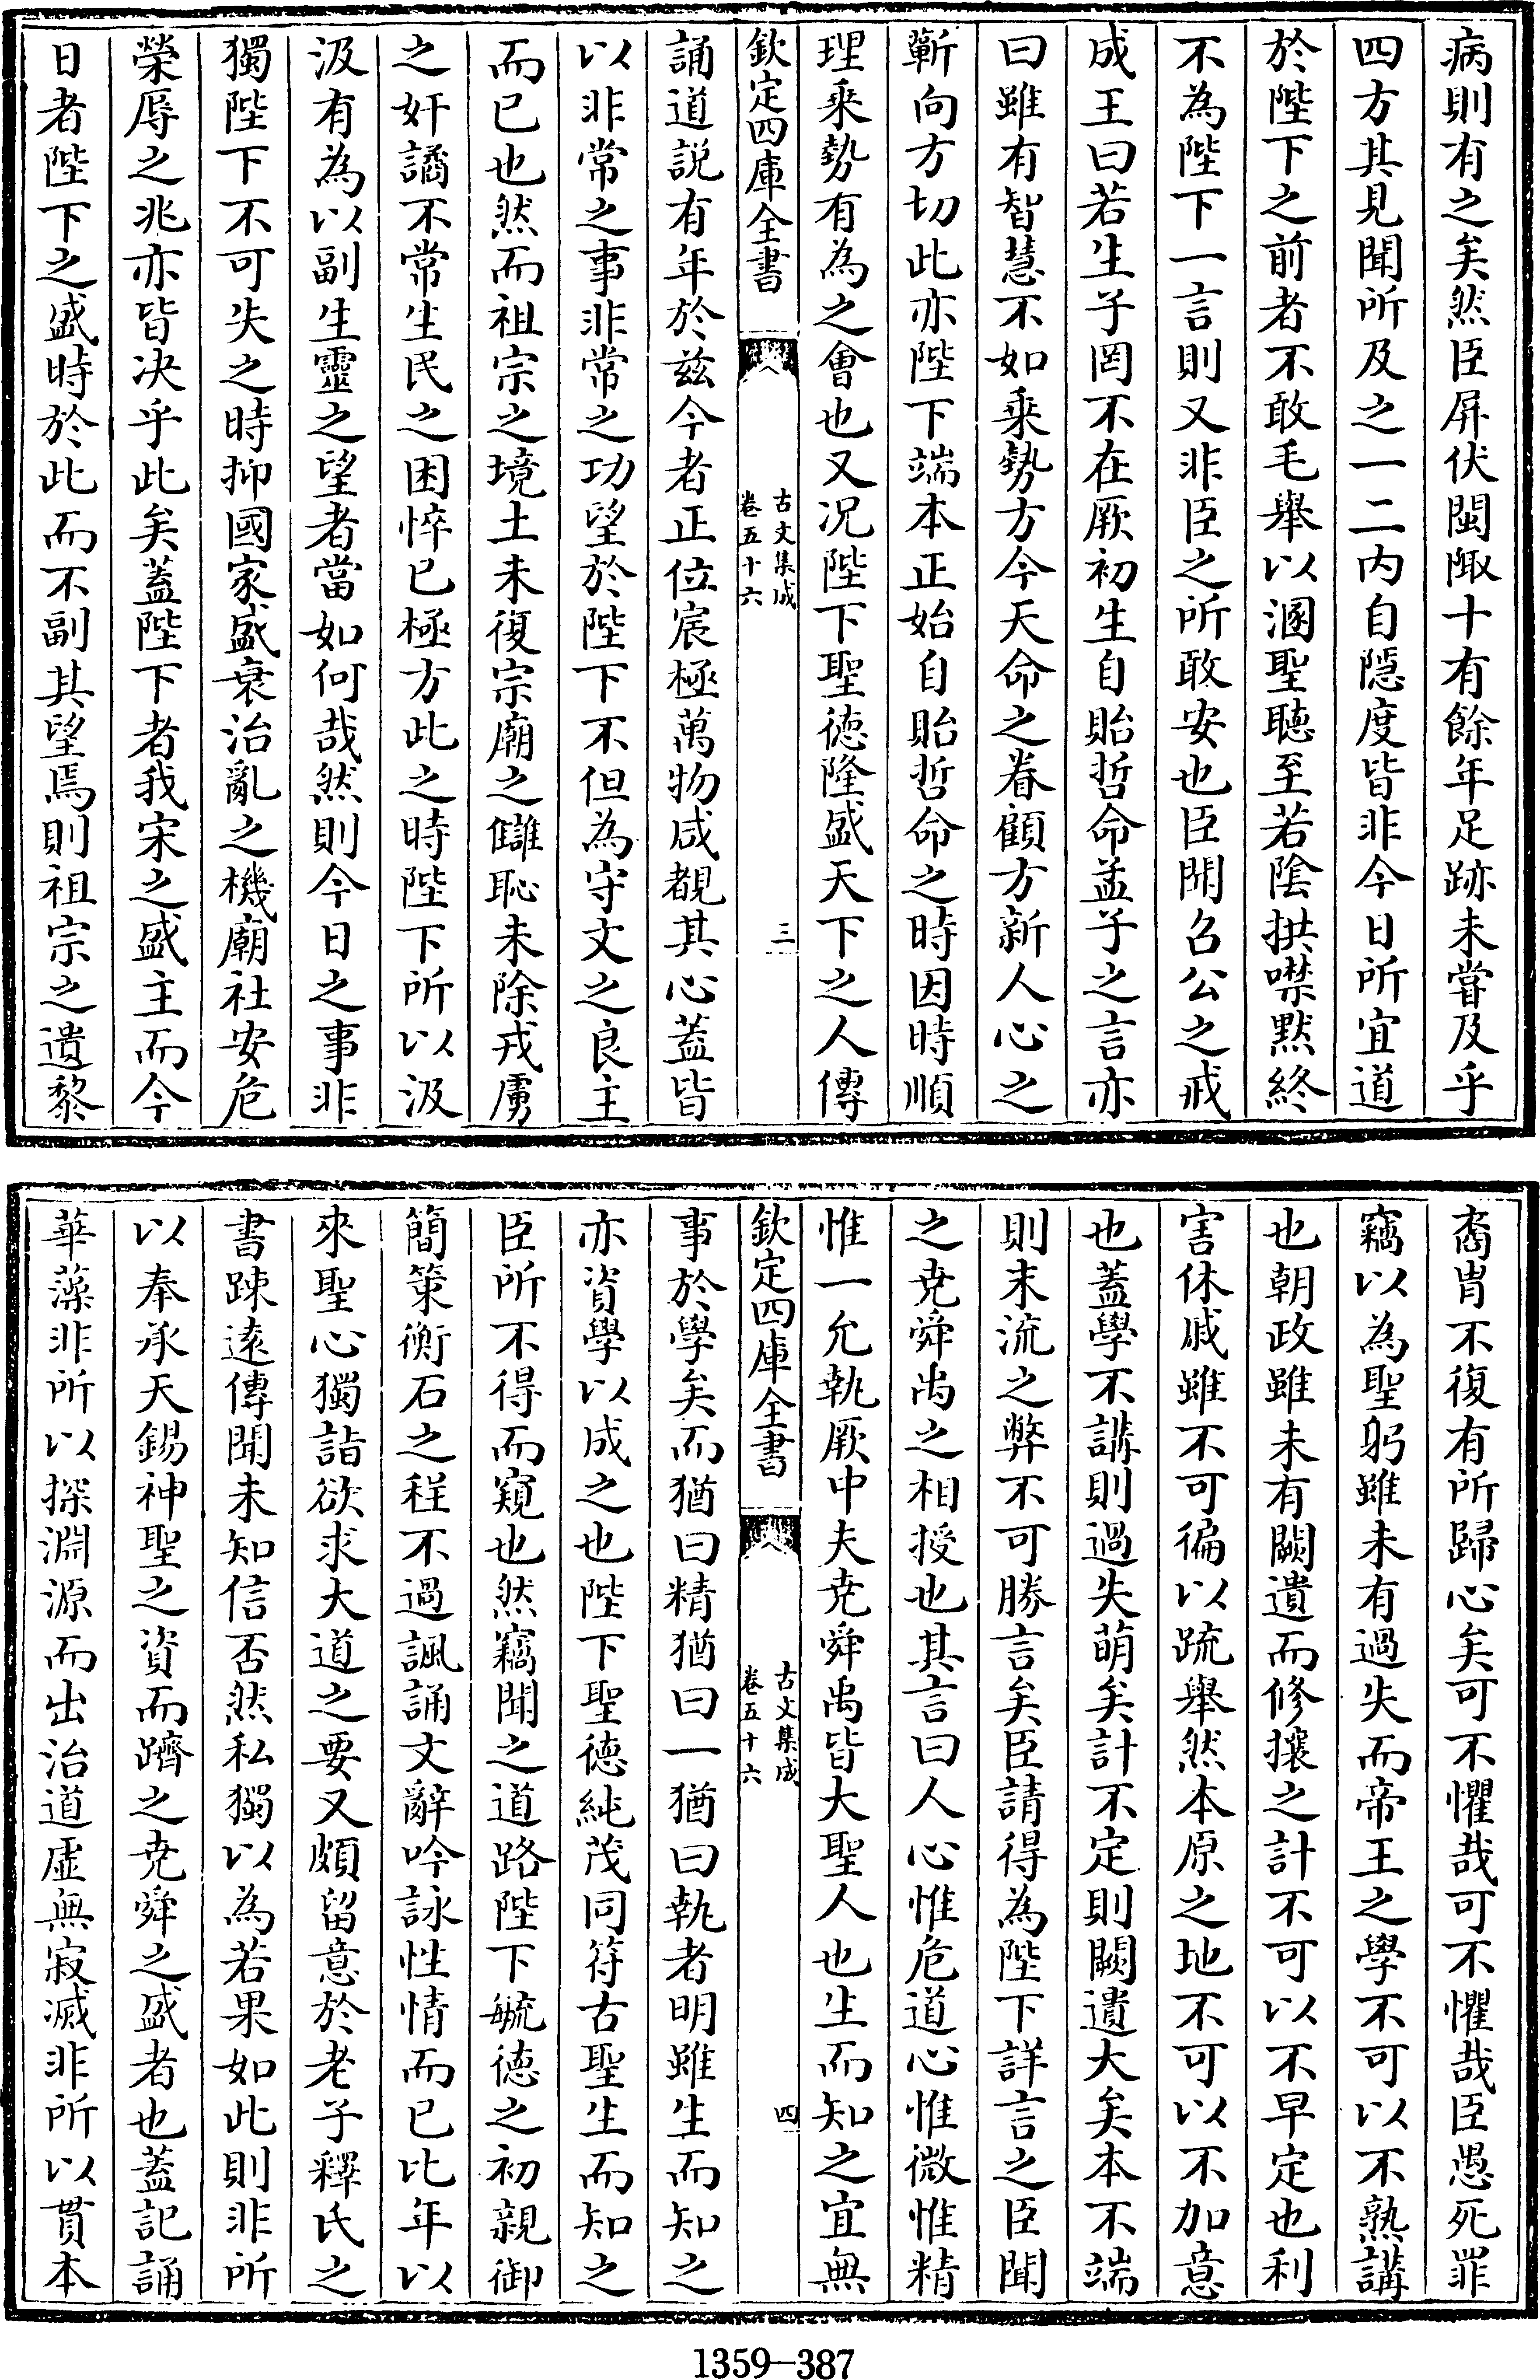 病則有之矣然臣屏伏閩陬十有餘年足跡未甞及乎
四方其見聞所及之一二内自隱度皆非今日所宜道
於陛下之前者不敢毛舉以溷聖聽至若陰拱噤黙終
不為陛下一言則又非臣之所敢安也臣聞召公之戒
成王曰若生子罔不在厥初生自貽哲命孟子之言亦
曰雖有智慧不如乗勢方今天命之眷顧方新人心之
蘄向方切此亦陛下端本正始自貽哲命之時因時順
理乗勢有為之會也又况陛下聖徳隆盛天下之人傳
欽定四庫全書
古文集成
卷五十六
三
誦道説有年於兹今者正位宸極萬物咸覩其心蓋皆
以非常之事非常之功望於陛下不但為守文之良主
而已也然而祖宗之境土未復宗廟之讎恥未除戎虜
之奸譎不常生民之困悴已極方此之時陛下所以汲
汲有為以副生靈之望者當如何哉然則今日之事非
獨陛下不可失之時抑國家盛衰治亂之機廟社安危
榮辱之兆亦皆决乎此矣蓋陛下者我宋之盛主而今
日者陛下之盛時於此而不副其望焉則祖宗之遺黎
裔胄不復有所歸心矣可不懼哉可不懼哉臣愚死罪
竊以為聖躬雖未有過失而帝王之學不可以不熟講
也朝政雖未有闕遺而修攘之計不可以不早定也利
害休戚雖不可徧以疏舉然本原之地不可以不加意
也蓋學不講則過失萌矣計不定則闕遺大矣本不端
則末流之弊不可勝言矣臣請得為陛下詳言之臣聞
之尭舜禹之相授也其言曰人心惟危道心惟微惟精
惟一允執厥中夫尭舜禹皆大聖人也生而知之宜無
欽定四庫全書
古文集成
卷五十六
四
事於學矣而猶曰精猶曰一猶曰執者明雖生而知之
亦資學以成之也陛下聖徳純茂同符古聖生而知之
臣所不得而窺也然竊聞之道路陛下毓徳之初親御
簡策衡石之程不過諷誦文辭吟詠性情而已比年以
來聖心獨詣欲求大道之要又頗留意於老子釋氏之
書踈逺傳聞未知信否然私獨以為若果如此則非所
以奉承天錫神聖之資而躋之尭舜之盛者也蓋記誦
華藻非所以探淵源而出治道虚無寂滅非所以貫本
1359-387